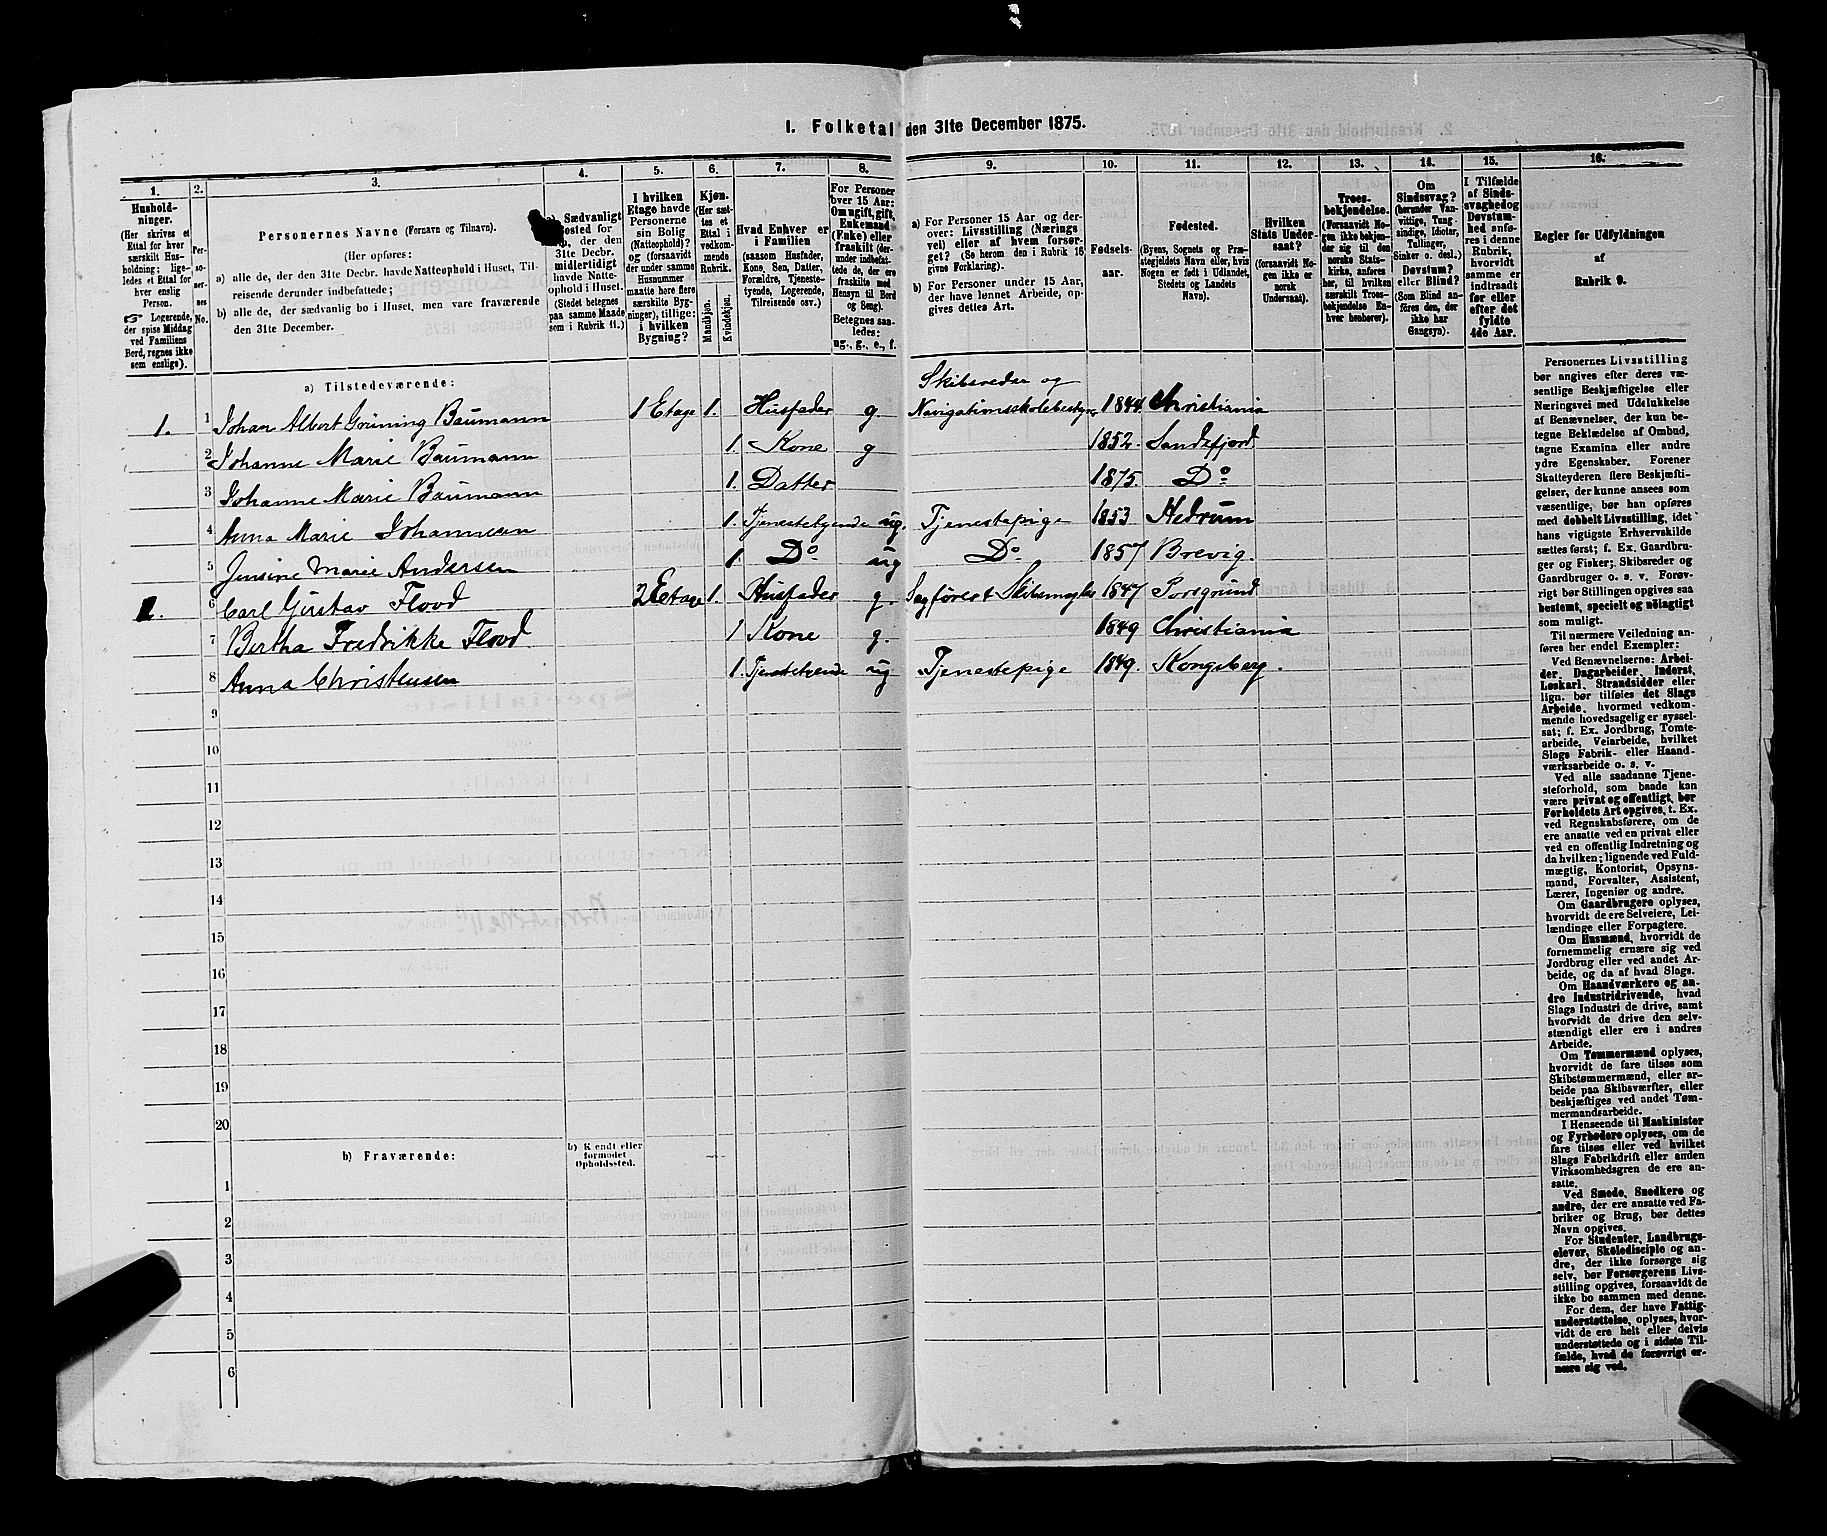 I. Folketal den 31te December 1875.
1. 2. 3. 4. 5. 6. 7. 8. 9. 10. 11. 12. 13. 14. 15. 16.
Hushold-
ninger.
(Her skrives et
Ettal for hver
særskilt Hus-
holdning; lige-
ledes et Ettal for
hver enslig
Person.
☞ Logerende,
der spise Middag
ved Familiens
Bord, regnes ikke
som enslige).
Per-
so-
ner-
nes
No.
Personernes Navne (Fornavn og Tilnavn).
(Her opføres:
a) alle de, der den 31te Decbr. havde Natteophold i Huset, Til-
reisende derunder indbefattede;
b) alle de, der sædvanlig bo i Huset, men vare fraværende
den 31te December.
Sædvanligt
Bosted for
de, der den
31te Decbr.
midlertidigt
havde Natte-
ophold i Huset.
(Stedet betegnes
paa samme Maade
som i Rubrik 11.)
I hvilken
Etage havde
Personerne
sin Bolig
(Natteophold)?
og (forsaavidt
der under samme
Husnummer
maatte høre flere
særskilte Byg-
ninger), tillige:
i hvilken
Bygning?
Kjøn.
(Her sæt-
tes et
Ettal i
vedkom-
mende
Rubrik.
Mandkjøn.
Kvindekjøn.
Hvad Enhver er
i Familien
(saasom Husfader,
Kone, Søn, Datter,
Forældre, Tjeneste-
tyende, Logerende,
Tilreisende osv.)
For Personer
over 15 Aar:
Om ugift, gift,
Enkemand
(Enke) eller
fraskilt (der-
under indbefat-
tede de, der ere
fraskilte med
Hensyn til Bord
og Seng).
Betegnes saa-
ledes:
ug., g., e., f.
a) For Personer 15 Aar og der-
over: Livsstilling (Nærings
vei) eller af hvem forsør-
get? (Se herom den i Rubrik 16
givne Forklaring).
b) For Personer under 15 Aar,
der have lønnet Arbeide, op-
gives dettes Art.
Fødsels-
aar.
Fødested.
(Byens, Sognets og Præ-
stegjeldets Navn eller, hvis
Nogen er født i Udlandet,
Stedets og Landets
Navn).
Hvilken
Stats Under-
saat?
(forsaavidt No-
gen ikke er
norsk
Undersaat).
Troes-
bekjendelse.
(Forsaavidt No-
gen ikke bekjen-
der sig til den
norske Stats-
kirke, anføres
her, til hvilken
særskilt Troes-
bekjendelse En-
hver henhører).
Om
Sindssvag?
(herunder Van-
vittige, Tung-
sindige, Idioter,
Tullinger,
Sinker o. desl.)
Døvstum?
eller Blind?
(Som Blind an-
føres den, der
ikke har
Gangsyn).
I Tilfælde
af Sinds-
svaghed og
Døvstum-
hed anfø-
res i denne
Rubrik,
hvorvidt
samme er
indtraadt
før eller
efter det
fyldte
4de Aar.
Regler for Udfyldningen
af
Rubrik 9.
a) Tilstedeværende:
Skibsreder og
1. 1 Johan Albert Grüning Baumann 1 Etage 1. Husfader g. Navigationsskolebestyr 1844 Christiania
2 Johanne Marie Baumann 1. Kone g 1852. Sandefjord
3 Johanne Marie Baumann 1. Datter 1875. Do
4 Anna Marie Johannesen 1. Tjenestetyende ug. Tjenestepige 1853 Hedrum
5 Jensine Marie Andersen 1. Do ug Do 1857 Brevig.
2. 6 Carl Gustav Flood 2 Etage 1. Husfader g. Sagfører & Skibsmægler 1847 Porsgrund
7 Bertha Fredrikke Flood 1 Kone g. 1849 Christiania
8 Anna Christensen 1. Tjenestetyende ug Tjenestepige 1849. Kongsberg.
9
10
11
12
13
14
15
16
17
18
19
20
b) Fraværende:
b) Kjendt eller
formodet
Opholdssted.
1
2
3
4
5
6
Personernes Livsstilling
bør angives efter deres væ-
sentlige Beskjæftigelse eller
Næringsvei med Udelukkelse
af Benævnelser, der kun be-
tegne Beklædelse af Ombud,
tagne Examina eller andre
ydre Egenskaber. Forener
Skatteyderen flere Beskjæfti-
gelser, der kunne ansees som
væsentlige, bør han opføres
med dobbelt Livsstilling, idet
hans vigtigste Erhvervskilde
sættes først; f. Ex. Gaardbru-
ger og Fisker; Skibsreder og
Gaardbruger o. s. v. Forøv-
rigt bør Stillingen opgives saa
bestemt, specielt og nøiagtigt
som muligt.
Til nærmere Veiledning an-
føres her endel Exempler:
Ved Benævnelserne: Arbei-
der, Dagarbeider, Inderst,
Løskarl, Strandsidder eller
lign. bør tilføies det Slags
Arbeide, hvormed vedkom-
mende hovedsagelig er syssel-
sat; f. Ex. Jordbrug, Tomte-
arbeide, Veiarbeide, hvilket
Slags Fabrik- eller Haand-
værksarbeide o. s. v.
Ved alle saadanne Tjene-
steforhold, som baade kan
være privat og offentligt, bør
Forholdets Art opgives, t. Ex.
ved Regnskabsførere, om de
ere ansatte ved en privat eller
ved en offentlig Indretning og
da hvilken; lignende ved Fuld-
mægtig, Kontorist, Opsyns-
mand, Forvalter, Assistent,
Lærer, Ingeniør og andre.
Om Gaardbrugere oplyses,
hvorvidt de ere Selveiere, Lei-
lændinge eller Forpagtere.
Om Husmænd, hvorvidt de
fornemmelig ernære sig ved
Jordbrug eller ved andet Ar-
beide, og da af hvad Slags.
Om Haandværkere og an-
dre Industridrivende, hvad
Slags Industri de drive, samt
hvorvidt de drive den selv-
stændigt eller ere i andres
Arbeide.
Om Tømmermænd oplyses,
hvorvidt de fare tilsøs som
Skibstømmermænd, eller ar-
beide paa Skibsværfter, eller
beskjæftiges ved andet Tøm-
mermandsarbeide.
I Henseende til Maskinister
og Fyrbødere oplyses, om de
fare tilsøs eller ved hvilket
Slags Fabrikdrift eller anden
Virksomhedsgren de ere an-
satte.
Ved Smede, Snedkere og
andre, der ere ansatte ved Fa-
briker og Brug, bør dettes
Navn opgives.
For Studenter, Landbrugs-
elever, Skoledisciple og an-
dre, der ikke forsørge sig
selv, bør Forsørgerens Livs-
stilling opgives, forsaavidt de
ikke bo sammen med denne.
For dem, der have Fattig-
understøttelse, oplyses, hvor-
vidt de ere helt eller delvis
understøttede og i sidste Til-
fælde, hvad de forøvrigt er-
nære sig ved.